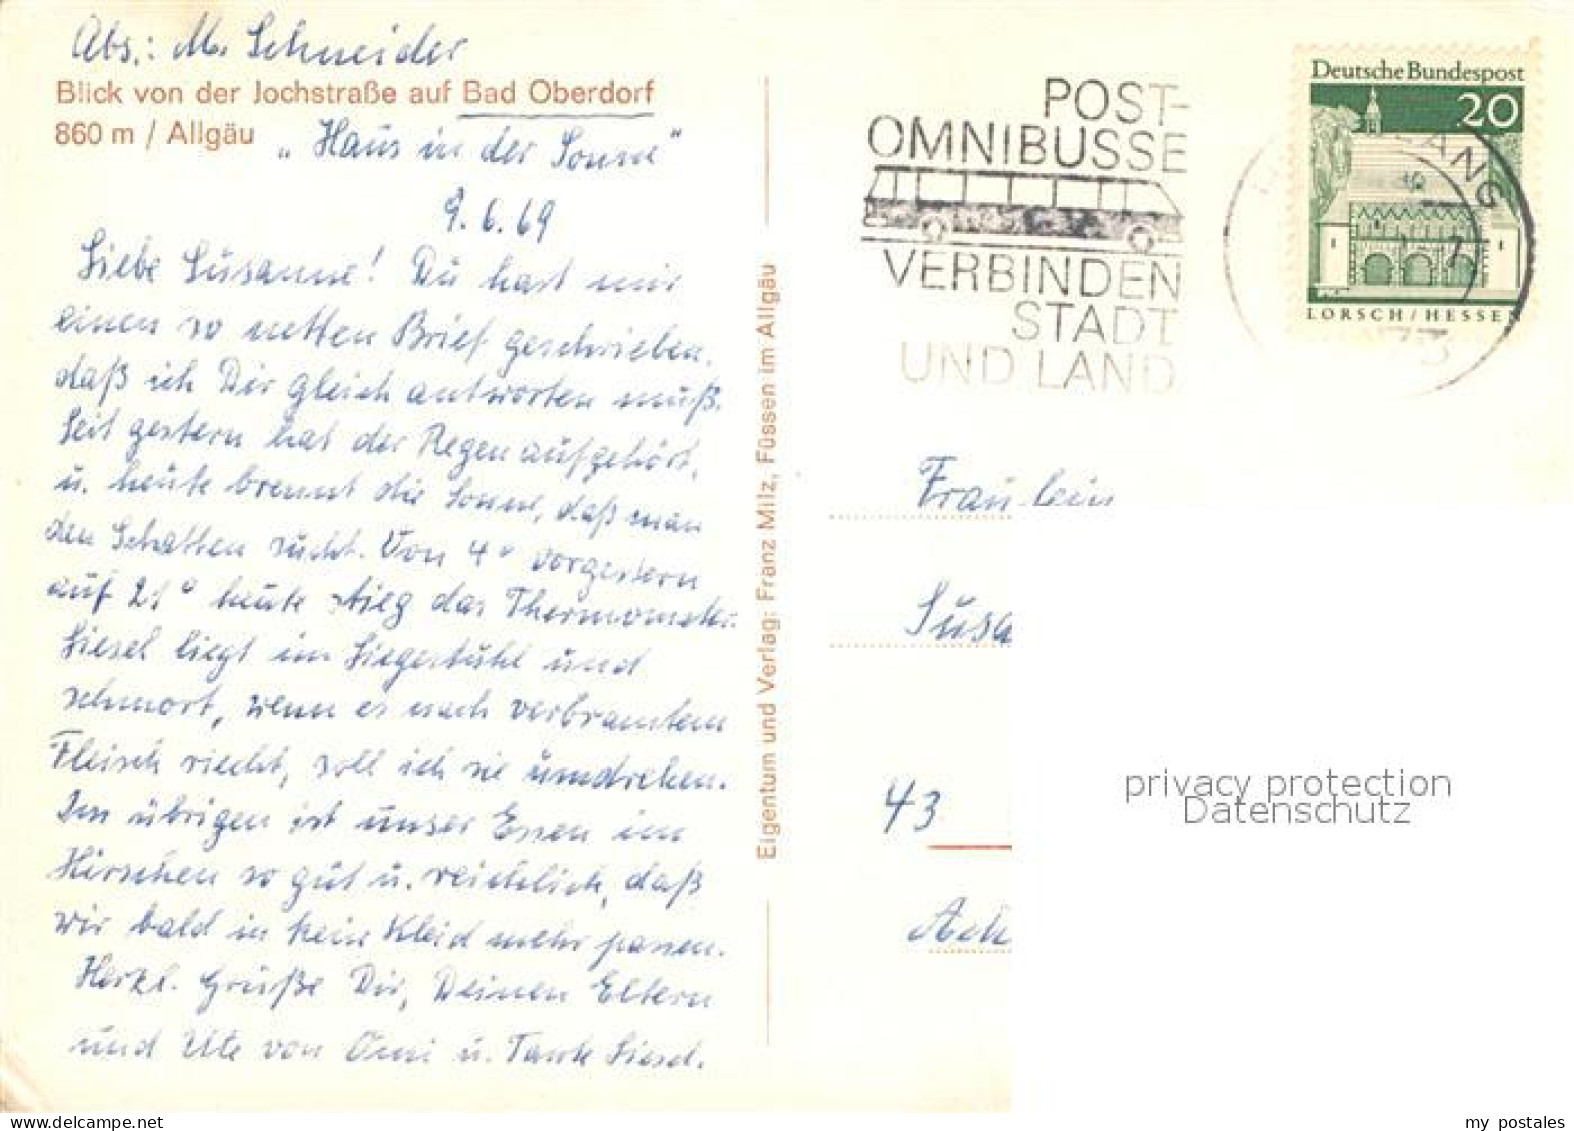 Abs.: M. Schneider
Blick von der Jochstraße auf Bad Oberdorf
860 m / Allgäu
„Haus in der Sonne"
9.6.69
Liebe Susanne! Du hast mir
einen so netten Brief geschrieben,
daß ich Dir gleich antworten muß.
Seit gestern hat der Regen aufgehört,
u. heute brennt die Sonne, daß man
den Schatten sucht. Von 4° vorgestern
auf 21° heute stieg das Thermometer.
Liesel liegt im Liegestuhl und
schmort, wenn es nach verbranntem
Fleisch riecht, soll ich sie umdrehen.
Im übrigen ist unser Essen im
Hirschen so gut u. reichlich, daß
wir bald in kein Kleid mehr passen.
Herzl. Grüße Dir, Deinen Eltern
und Ute von Omi u. Tante Liesel.
Eigentum und Verlag: Franz Milz, Füssen im Allgäu
POST-
OMNIBUSSE
VERBINDEN
STADT
UND LAND
Deutsche Bundespost
20
LORSCH / HESSEN
Fräulein
Susa
43
Ach
privacy protection
Datenschutz
my postales